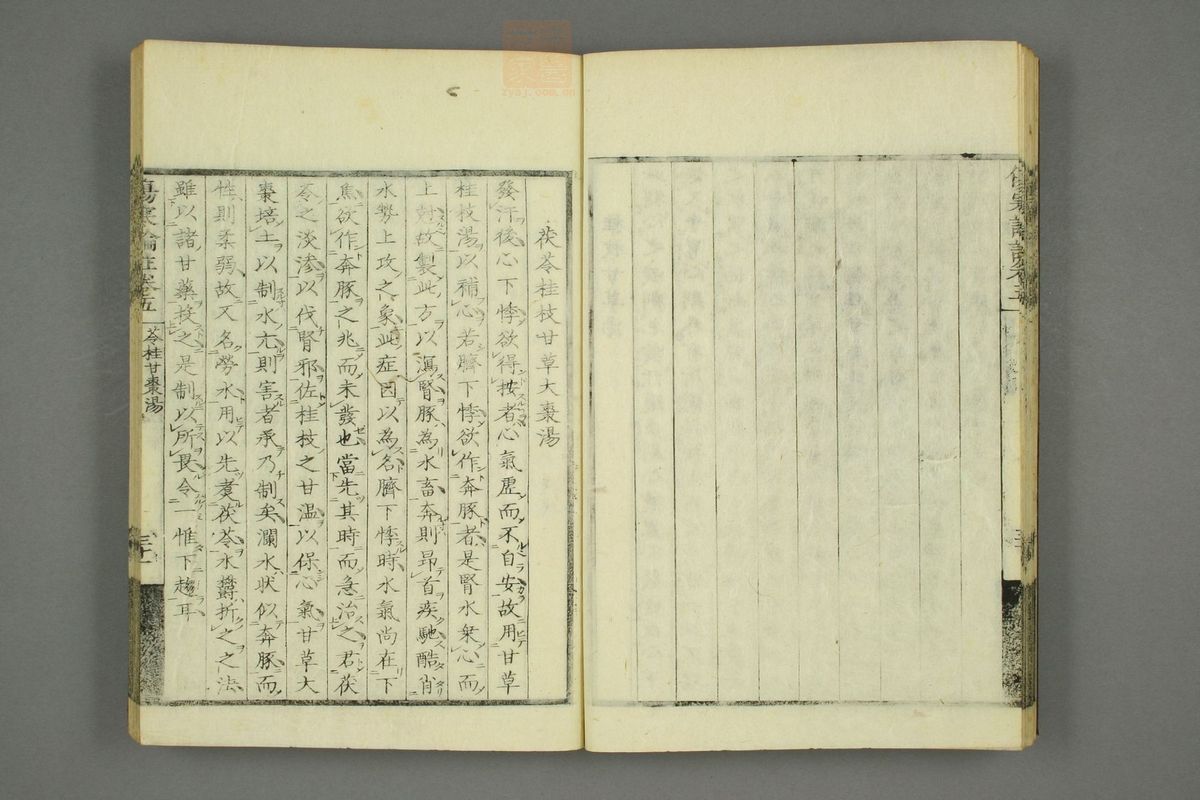 茯苓桂枝甘草大棗湯
發汗後心下悸欲得按者心氣虛而不自安故用甘草
桂枝湯以補心若臍下悸欲作奔豚者是腎水乘心而
上尅故製此方以瀉腎豚為水畜奔則昂首疾馳酷肖
水勢上攻之象此症因以為名臍下悸時水氣尚在下
焦欲作奔豚之兆而未發也當先其時而急治之君茯
苓之淡滲以伐腎邪佐桂枝之甘溫以保心氣甘草大
棗培土以制水亢則害者承乃制矣瀾水狀似奔豚而
性則柔弱故又名勞水用以先煮茯苓水鬱折之之法
雖以諸甘藥投之是制以所畏令一惟下趨耳
傷寒論註卷五 苓桂甘棗湯
zysj.com.cn